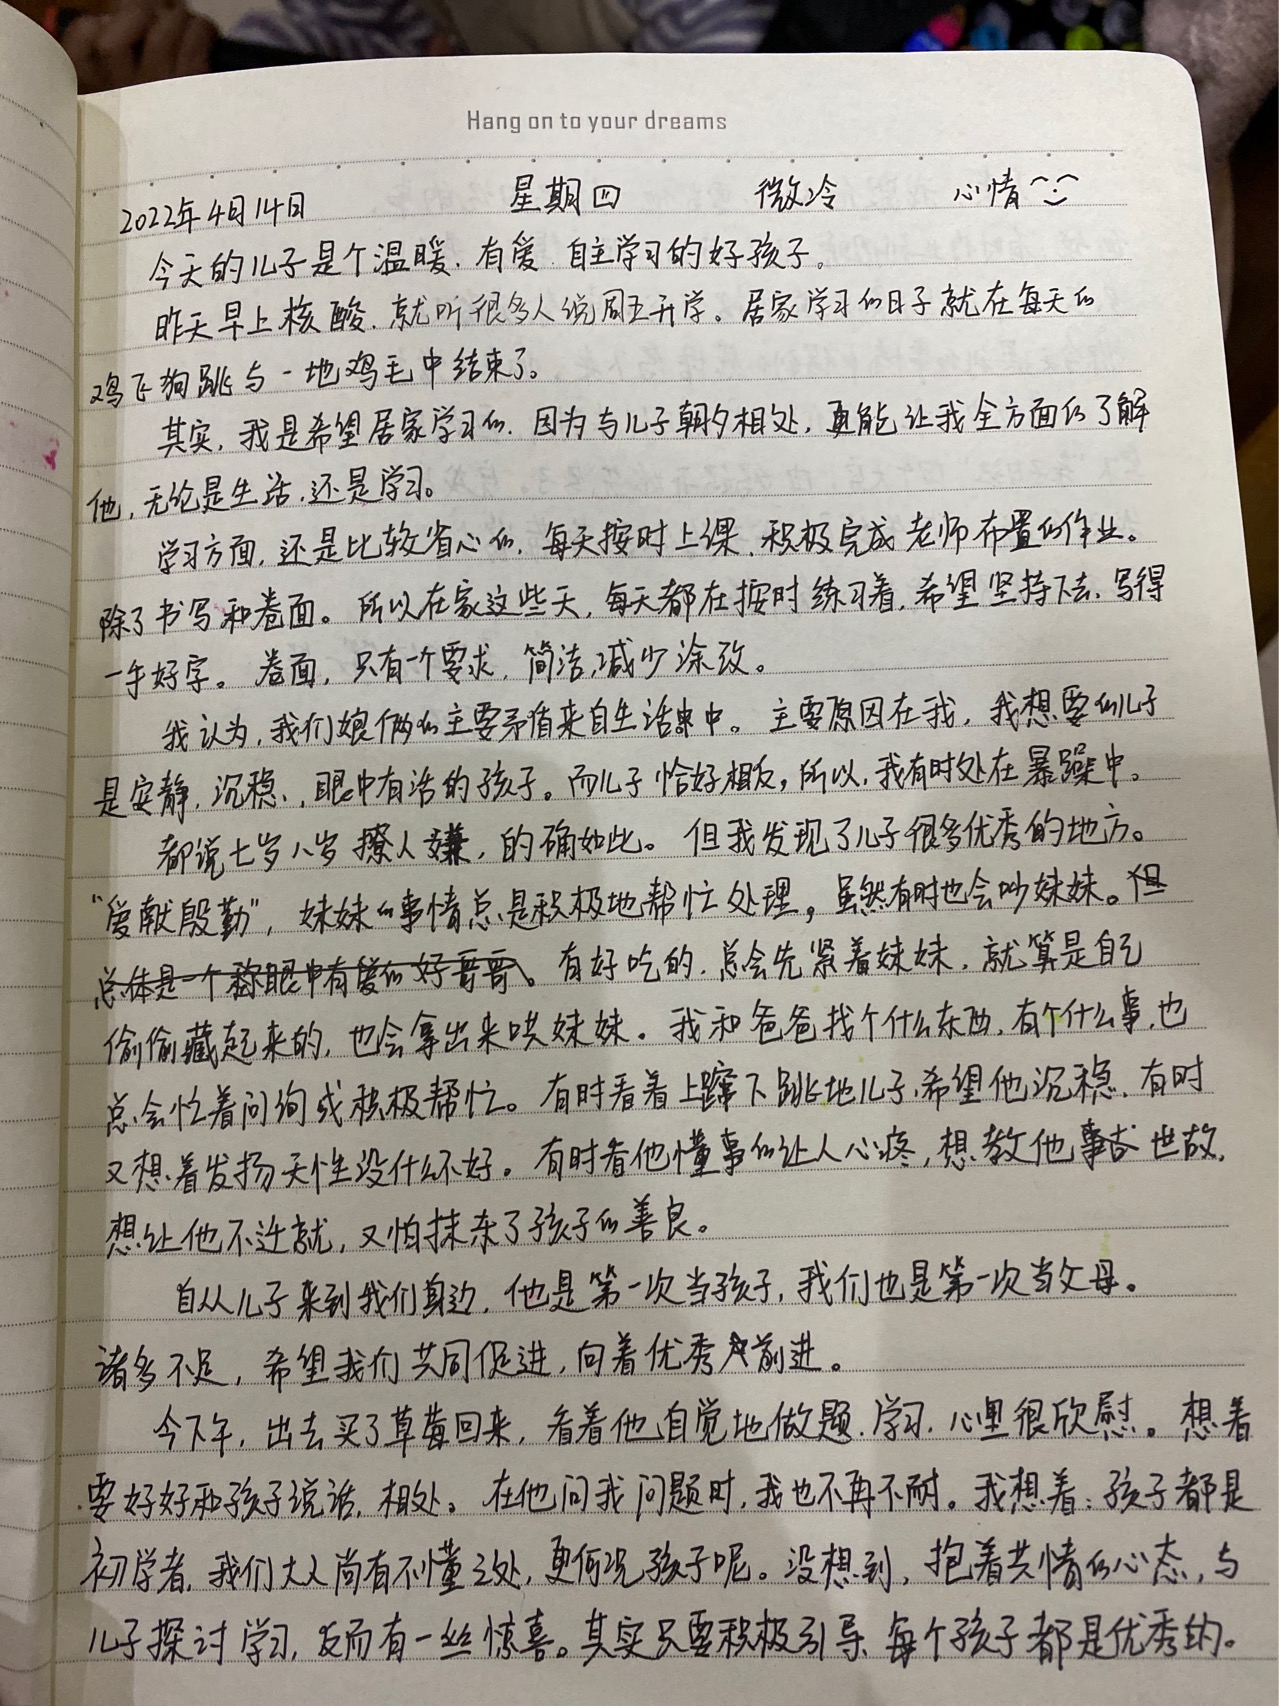 Hang on to your dreams
2022年4月14日 星期四 微冷 心情
今天的儿子是个温暖、有爱、自主学习的好孩子。
昨天早上核酸、就听很多人说周五开学。居家学习的日子就在每天的
鸡飞狗跳与一地鸡毛中结束了。
其实，我是希望居家学习的，因为与儿子朝夕相处，更能让我全方面的了解
他，无论是生活，还是学习。
学习方面，还是比较省心的，每天按时上课、积极完成老师布置的作业。
除了书写和卷面。所以在家这些天，每天都在按时练习着，希望坚持下去、写得
一手好字。卷面，只有一个要求，简洁，减少涂改。
我认为，我们娘俩的主要矛盾来自生活中。主要原因在我，我想要的儿子
是安静，沉稳、，眼中有活的孩子。而儿子恰好相反，所以，我有时处在暴躁中。
都说七岁八岁撩人嫌，的确如此。但我发现了儿子很多优秀的地方。
“爱献殷勤”，妹妹的事情总是积极地帮忙处理，虽然有时也会吵妹妹。但
总体是一个称眼中有爱的好哥哥。有好吃的，总会先紧着妹妹，就算是自己
偷偷藏起来的，也会拿出来哄妹妹。我和爸爸找个什么东西，有个什么事，也
总会忙着问询或积极帮忙。有时看着上蹿下跳地儿子，希望他沉稳，有时
又想着发扬天性没什么不好。有时看他懂事的让人心疼，想教他事故世故，
想让他不迁就，又怕抹杀了孩子的善良。
自从儿子来到我们身边，他是第一次当孩子，我们也是第一次当父母。
诸多不足，希望我们共同促进，向着优秀前进。
今下午，出去买了草莓回来，看着他自觉地做题、学习，心里很欣慰。想着
要好好和孩子说话，相处。在他问我问题时，我也不再不耐。我想着：孩子都是
初学者，我们大人尚有不懂之处，更何况孩子呢。没想到，抱着共情的心态，与
儿子探讨学习，反而有一丝惊喜。其实只要积极引导、每个孩子都是优秀的。